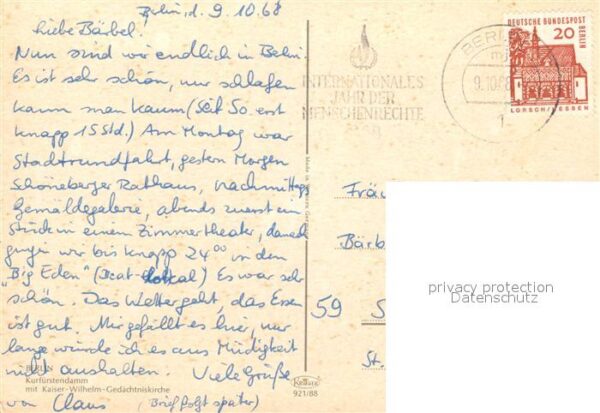 Berlin, d. 9.10.68
Liebe Bärbel!
Nun sind wir endlich in Berlin.
Es ist sehr schön, nur schlafen
kann man kaum (Seit So. erst
knapp 15 Std.) Am Montag war
Stadtrundfahrt, gestern Morgen
Schöneberger Rathaus, nachmittags
Gemäldegalerie, abends zuerst ein
Stück in einem Zimmertheater, danach
gingen wir bis knapp 24⁰⁰ in den
"Big Eden" (Beat-Lokal) Es war sehr
schön. Das Wetter geht, das Essen
ist gut. Mir gefällt es hier, nur
lange würde ich es aus Müdigkeit
nicht aushalten. Viele Grüße
von Claus (Brief folgt später)
BERLIN
Kurfürstendamm
mit Kaiser-Wilhelm-Gedächtniskirche
INTERNATIONALES
JAHR DER
MENSCHENRECHTE
BERLIN
9.10.68
DEUTSCHE BUNDESPOST
BERLIN
20
LORSCH/HESSEN
Fräu
Bärb
59 S
St.
privacy protection
Datenschutz
Krüger
921/88